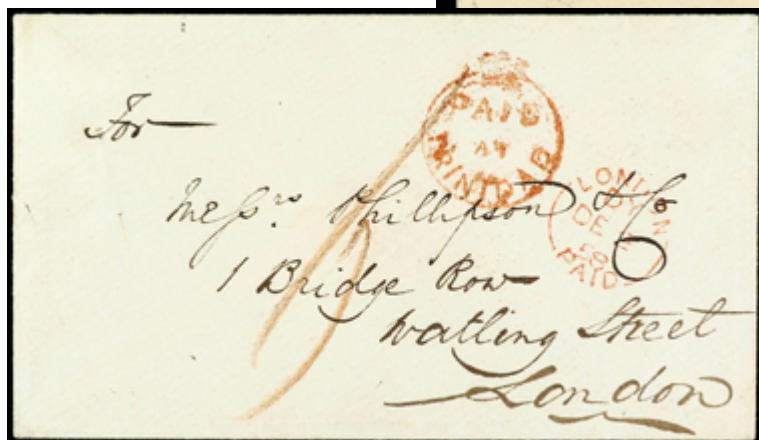 PAID
AT
TRINIDAD
LONDON
DE
PAID
For
Messrs. Phillipson & Co
1 Bridge Row
Watling Street
London